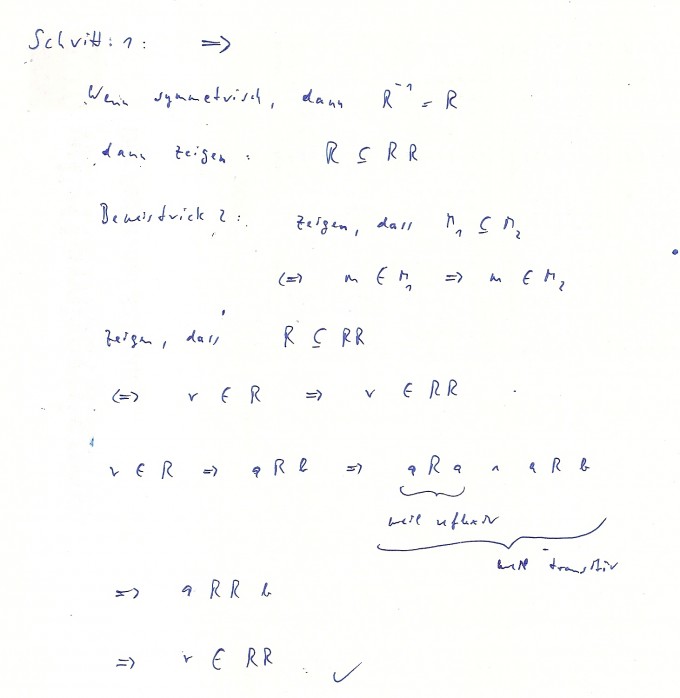 Schritt: 1: ⇒
Wenn symmetrisch, dann R⁻¹ = R
dann zeigen: R ⊆ R R
Beweistrick 2: zeigen, dass M₁ ⊆ M₂
(=) m ∈ M₁ ⇒ m ∈ M₂
zeigen, dass R ⊆ RR
(=) r ∈ R ⇒ r ∈ RR
r ∈ R ⇒ a R b ⇒ a R a ∧ a R b
weil reflexiv
weil transitiv
⇒ a R R b
⇒ r ∈ RR ✓